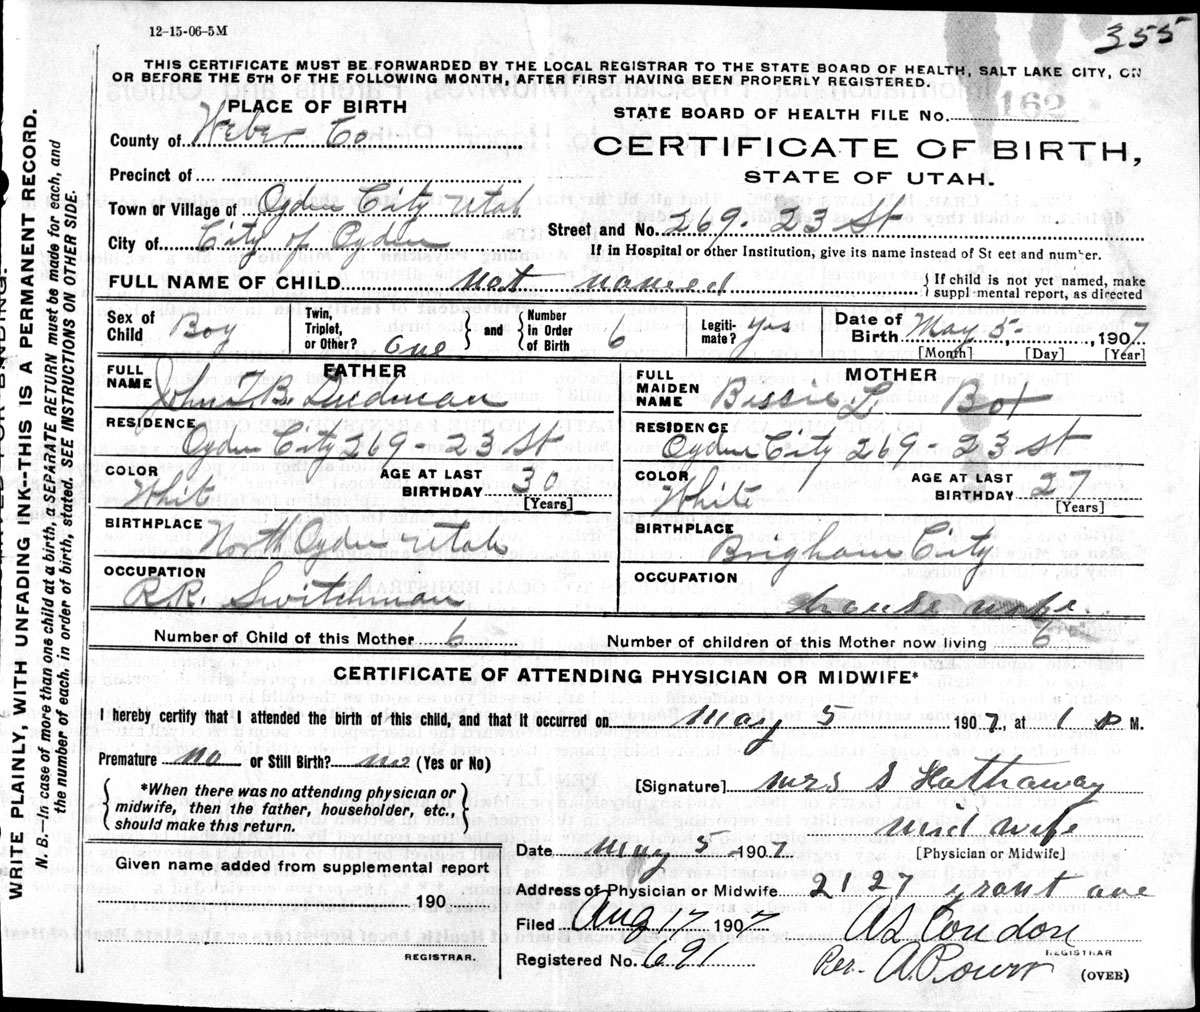 12-15-06-5M
355
THIS CERTIFICATE MUST BE FORWARDED BY THE LOCAL REGISTRAR TO THE STATE BOARD OF HEALTH, SALT LAKE CITY, ON
OR BEFORE THE 5TH OF THE FOLLOWING MONTH, AFTER FIRST HAVING BEEN PROPERLY REGISTERED.
PLACE OF BIRTH
County of Weber Co
Precinct of
Town or Village of Ogden City Utah
City of City of Ogden
STATE BOARD OF HEALTH FILE NO. 162
CERTIFICATE OF BIRTH,
STATE OF UTAH.
Street and No. 269-23 St
If in Hospital or other Institution, give its name instead of St eet and number.
FULL NAME OF CHILD not named
If child is not yet named, make
suppl mental report, as directed
Sex of Child Boy
Twin, Triplet, or Other? One
and
Number in Order of Birth 6
Legiti-mate? yes
Date of Birth May 5, 1907
[Month] [Day] [Year]
FATHER
FULL NAME John T.B.
RESIDENCE Ogden City 269-23 St
COLOR White
AGE AT LAST BIRTHDAY 30 [Years]
BIRTHPLACE North Ogden Utah
OCCUPATION R.R. Switchman
MOTHER
FULL MAIDEN NAME Bessie L
RESIDENCE Ogden City 269-23 St
COLOR White
AGE AT LAST BIRTHDAY 27 [Years]
BIRTHPLACE Brigham City
OCCUPATION house wife
Number of Child of this Mother 6
Number of children of this Mother now living 6
CERTIFICATE OF ATTENDING PHYSICIAN OR MIDWIFE*
I hereby certify that I attended the birth of this child, and that it occurred on May 5 1907 at 1 P M.
Premature no or Still Birth? no (Yes or No)
*When there was no attending physician or
midwife, then the father, householder, etc.,
should make this return.
[Signature] Mrs S Hathaway
mid wife
[Physician or Midwife]
Date May 5 1907
Address of Physician or Midwife 2127 Grant ave
Given name from supplemental report
190
REGISTRAR.
Filed Aug 17 1907
A L Condon
REGISTRAR
Registered No. 691
Per. A.
(OVER)
WRITE PLAINLY, WITH UNFADING INK--THIS IS A PERMANENT RECORD.
N. B.--In case of more than one child at a birth, a SEPARATE RETURN must be made for each, and
the number of each, in order of birth, stated. SEE INSTRUCTIONS ON OTHER SIDE.